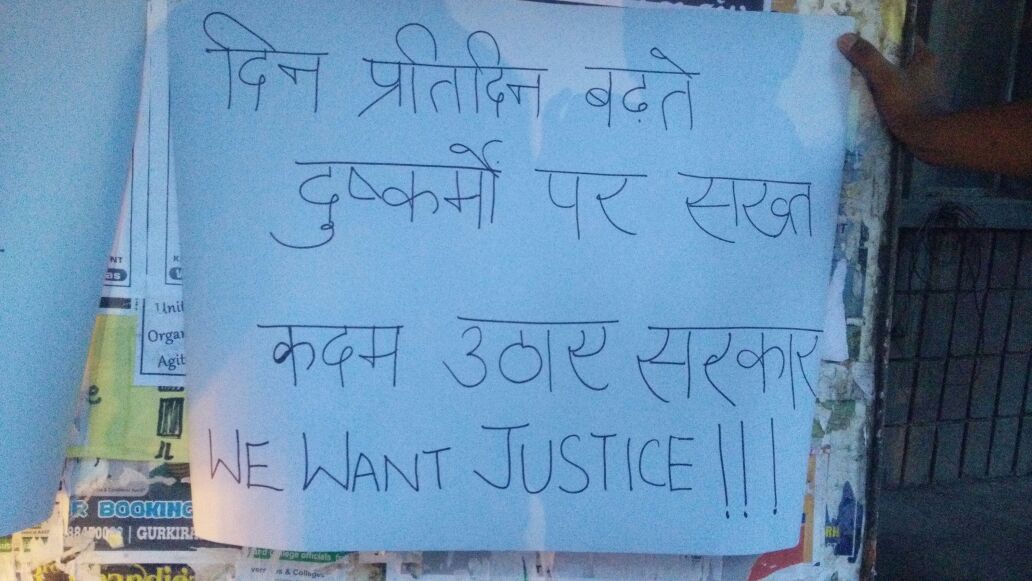 दिन प्रतिदिन बढ़ते
दुष्कर्मों पर सख्त
कदम उठाए सरकार
WE WANT JUSTICE !!!
NT
K
as
Unit
Organ
Agit
e
R BOOKING
GURKIRA
college officials
& Colleges